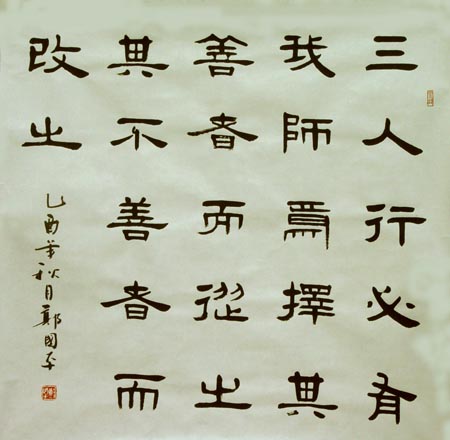 三人行必有
我師焉擇其
善者而從之
其不善者而
改之
乙酉年秋月鄭國平